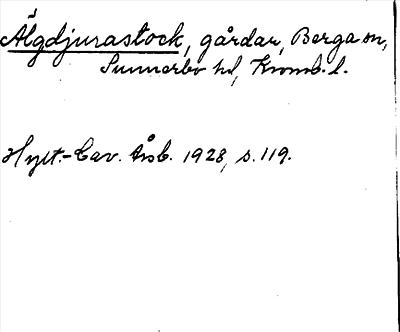 Älgdjurastock, gårdar, Berga sn,
Sunnerbo hd, Kronob. l.
Hylt.-Cav. Årsb. 1928, s. 119.